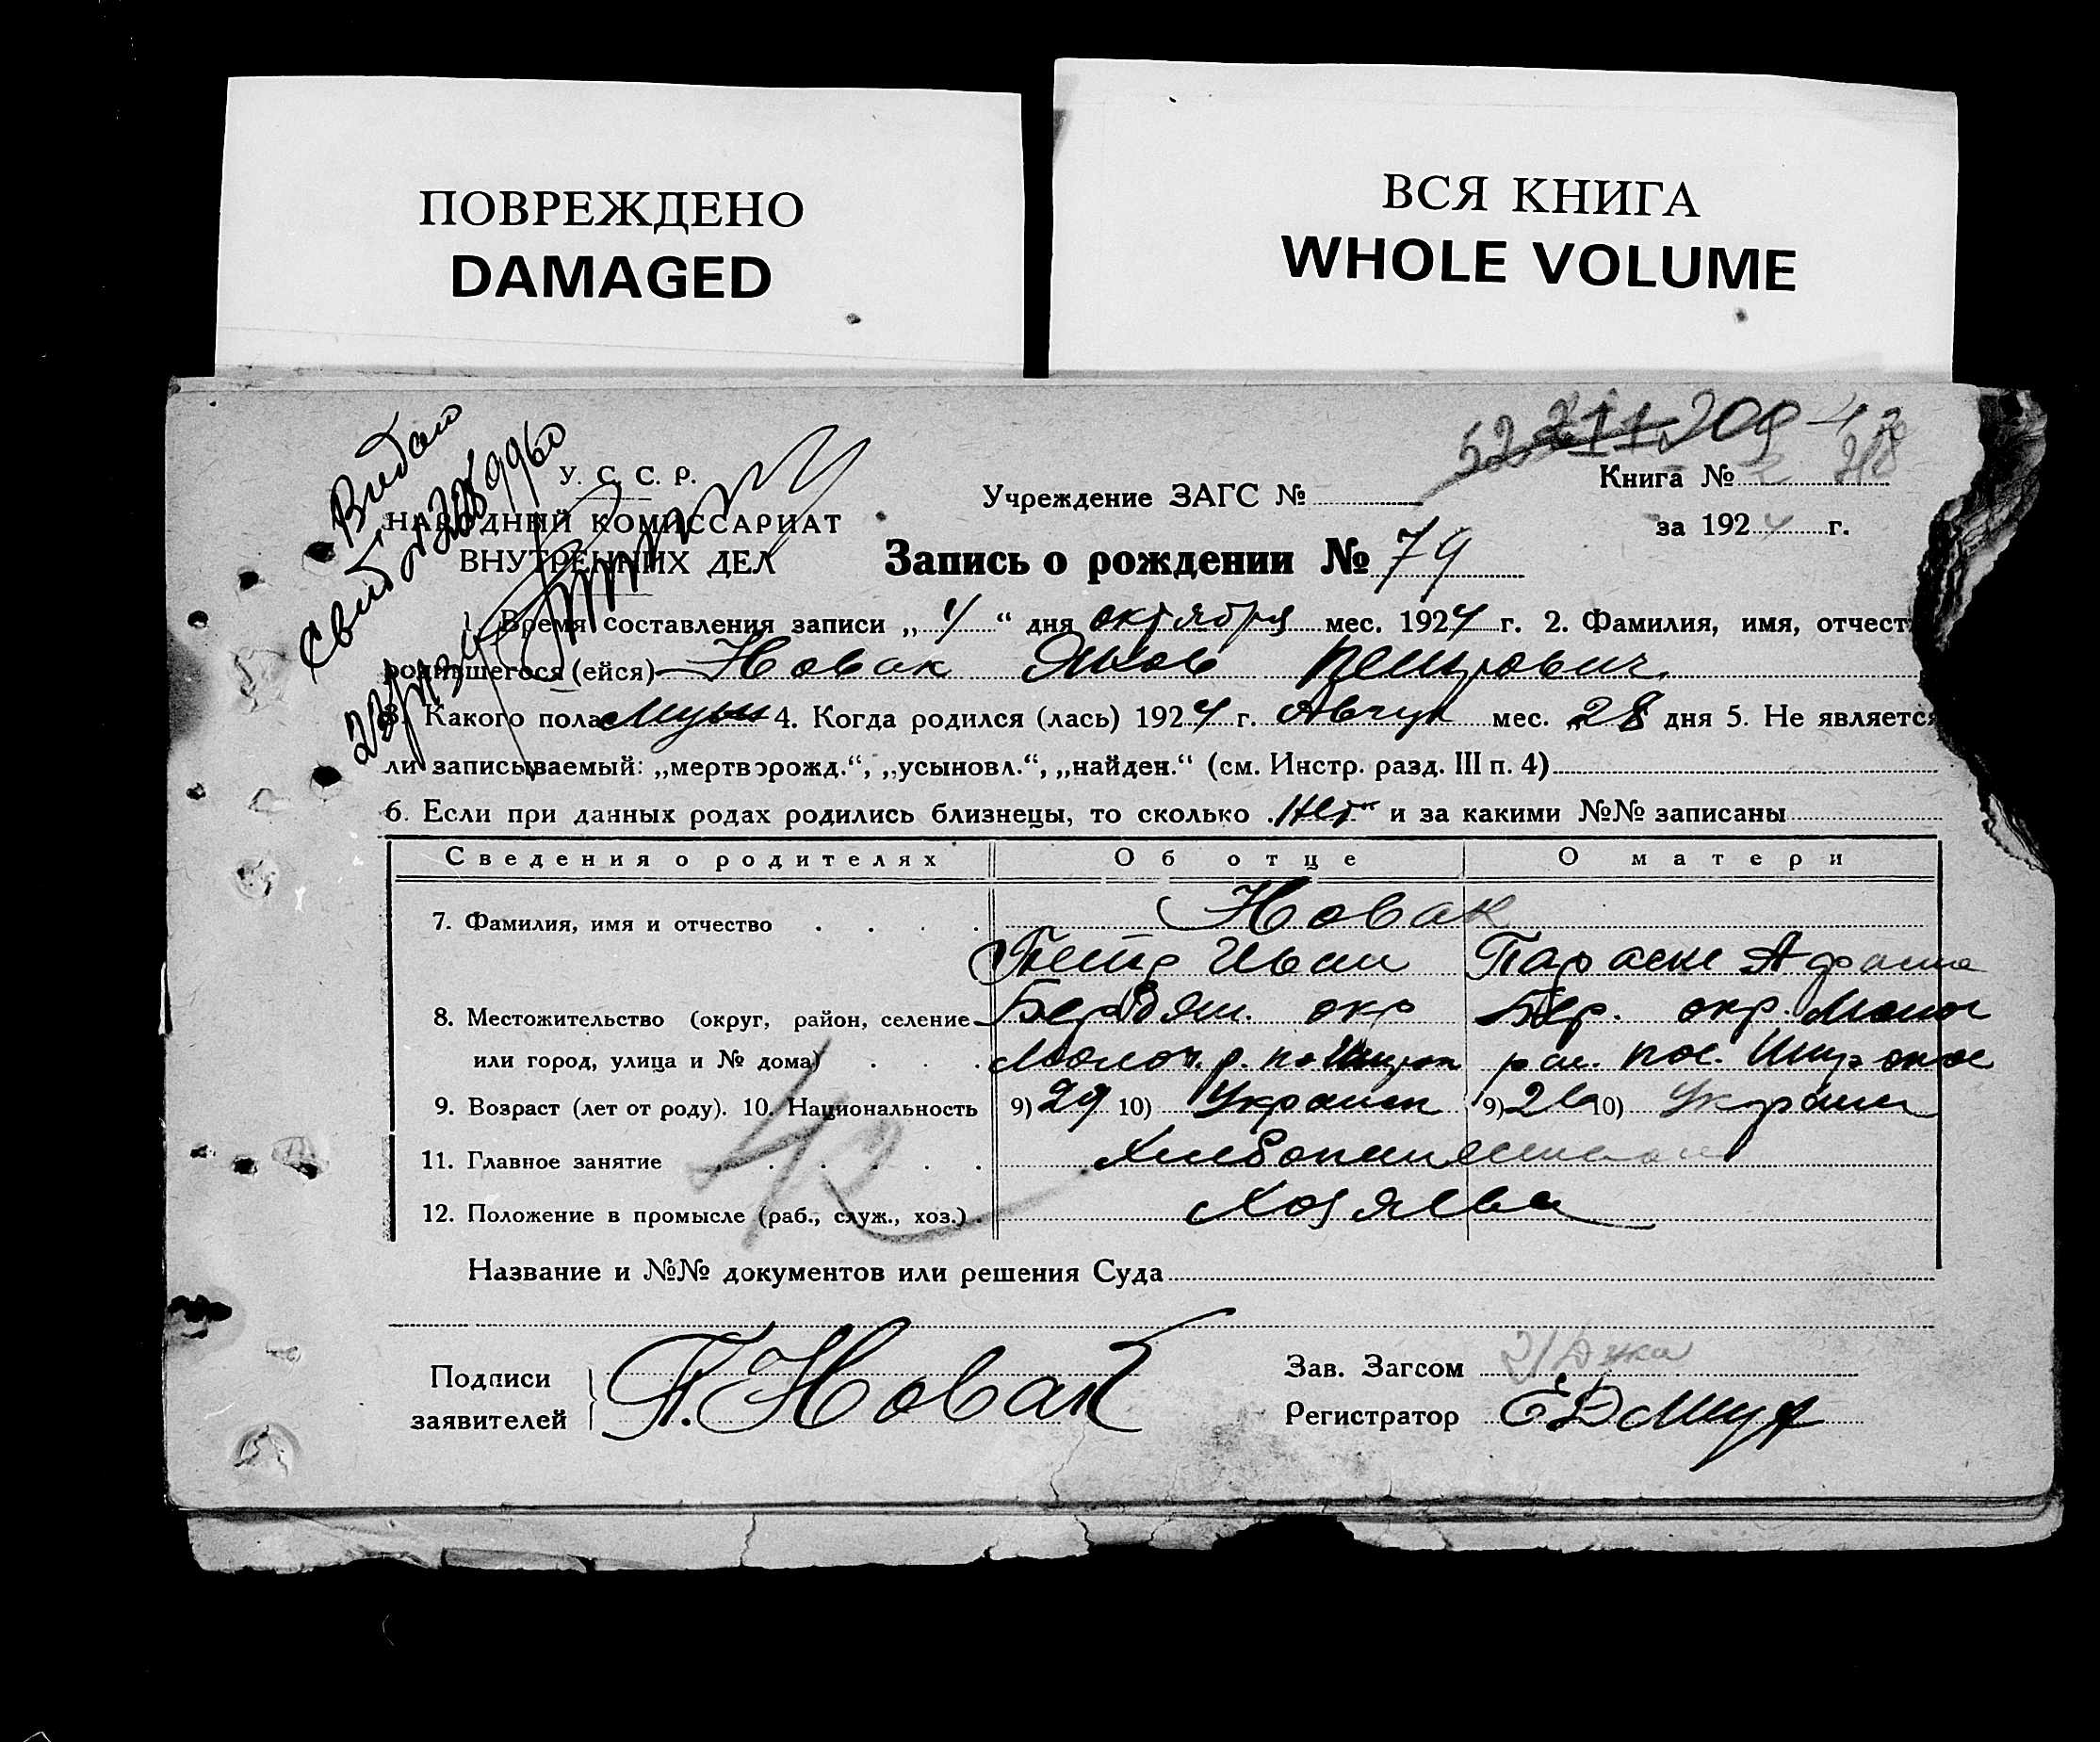 ПОВРЕЖДЕНО
DAMAGED
ВСЯ КНИГА
WHOLE VOLUME
209
У. С. С. Р.
НАРОДНЫЙ КОМИССАРИАТ
ВНУТРЕННИХ ДЕЛ
Учреждение ЗАГС №
Книга №
за 1924 г.
Запись о рождении № 79
1. Время составления записи „4“ дня октября мес. 1924 г. 2. Фамилия, имя, отчест
родившегося (ейся) Новак Яков Петрович
3. Какого пола муж 4. Когда родился (лась) 1924 г. Август мес. 28 дня 5. Не является
ли записываемый: „мертворожд.“, „усыновл.“, „найден.“ (см. Инстр. разд. III п. 4)
6. Если при данных родах родились близнецы, то сколько нет и за какими №№ записаны
Сведения о родителях Об отце О матери
7. Фамилия, имя и отчество Новак
Петр Иван Параск
8. Местожительство (округ, район, селение Бердян. окр Бер. окр. Молоч
или город, улица и № дома) Молоч. р.
9. Возраст (лет от роду). 10. Национальность 9) 29 10) Украин 9) 26 10) Украин
11. Главное занятие
12. Положение в промысле (раб., служ., хоз.) Хозяева
42
Название и №№ документов или решения Суда
Подписи
заявителей
П. Новак
Зав. Загсом
Регистратор